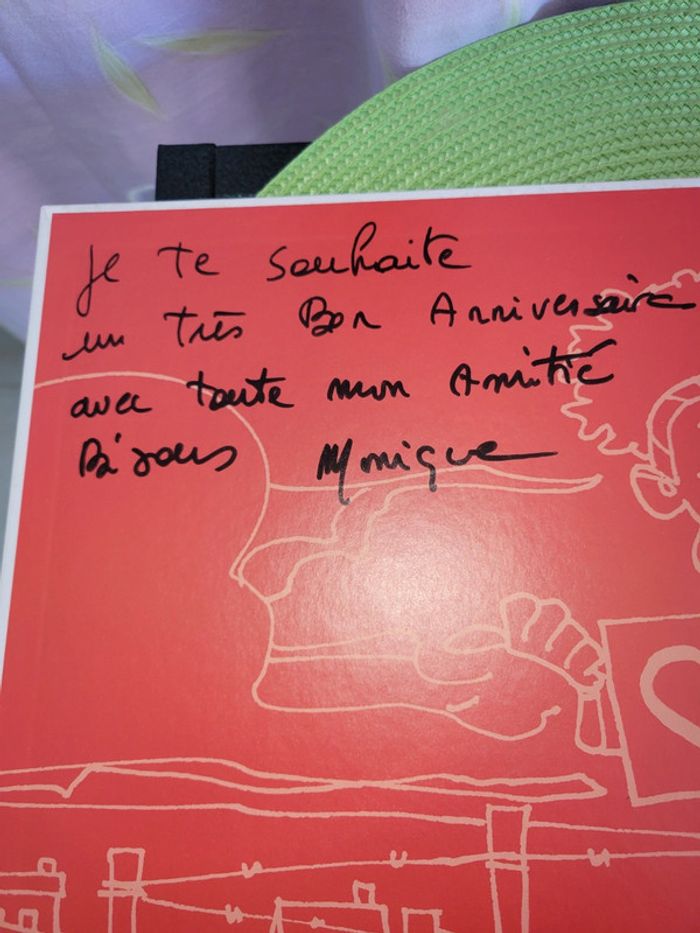 Je te souhaite
un très Bon Anniversaire
avec toute mon Amitié
Bisous Monique